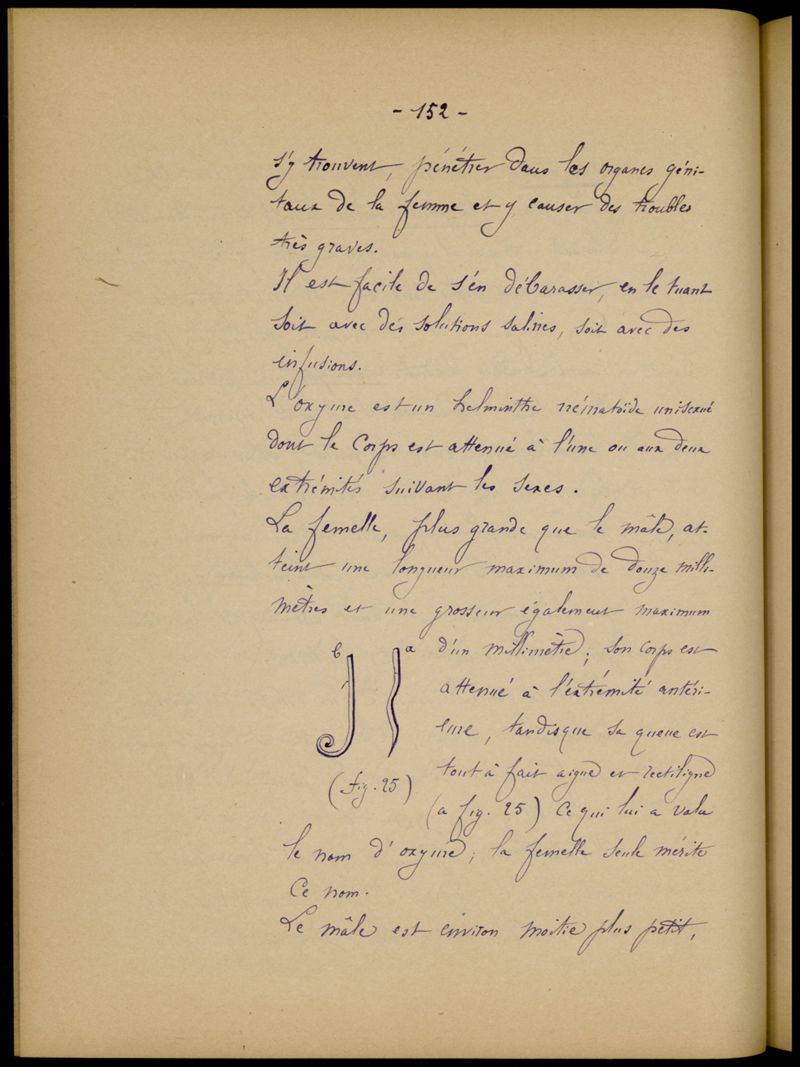 - 152 -
s'y trouvent, pénétrer dans les organes géni-
taux de la femme et y causer des troubles
très graves.
Il est facile de s'en débarasser, en le tuant
soit avec des solutions salines, soit avec des
infusions.
L'oxyure est un helminthe nématoïde unisexué
dont le corps est attenué à l'une ou aux deux
extrémités suivant les sexes.
La femelle, plus grande que le mâle, at-
teint une longueur maximum de douze milli-
mètres et une grosseur également maximum
d'un millimètre; son corps est
attenué à l'extrémité antéri-
eure, tandisque sa queue est
tout à fait aigue et rectiligne
(a fig. 25) ce qui lui a valu
b a
(fig. 25)
le nom d'oxyure; la femelle seule mérite
ce nom.
Le mâle est environ moitie plus petit,